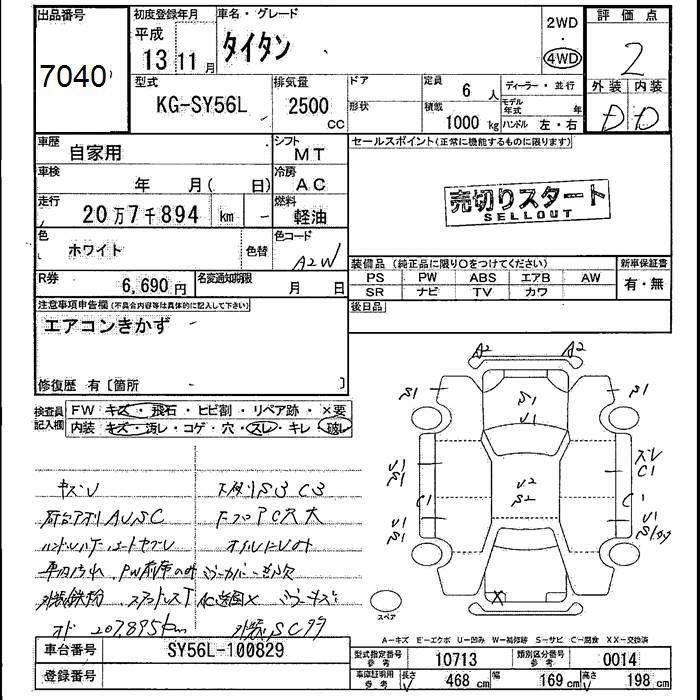 出品番号
7040
初度登録年月
平成
13年 11月
車名・グレード
タイタン
2WD
・
4WD
評価点
2
型式
KG-SY56L
排気量
2500
cc
ドア
形状
定員
6 人
積載
1000 kg
ディーラー・並行
モデル年式 年
ハンドル 左・右
外装 内装
D D
車歴
自家用
シフト
MT
車検
年 月( 日)
冷房
AC
走行
20万7千894 km
燃料
軽油
色
ホワイト
色替
色コード
A2W
R券
6,690円
名変通知期限
月 日
セールスポイント(正常に機能するものに限ります)
売切りスタート
SELLOUT
装備品(純正品に限り○をつけてください)
新車保証書
PS PW ABS エアB AW
SR ナビ TV カワ
有・無
後日品
注意事項申告欄(不具合内容等は具体的に記入して下さい)
エアコンきかず
修復歴 有〔箇所 〕
検査員記入欄
FW キズ・飛石・ヒビ割・リペア跡・×要
内装 キズ・汚レ・コゲ・穴・スレ・キレ・破レ
キズU
下廻りS3 C3
荷台アオリAUSC
Fフロア C穴大
オイルにじみ
オド 207,895km
A2 A2
S1 S1
S1
U1
U1
S1
U2
S2
スレ
C1
C1
C1
U1
S1
U1
X
スペア
A-キズ E-エクボ U-凹み W-補修跡 S-サビ C-腐食 XX-交換済
車台番号
SY56L-100829
登録番号
型式指定番号
参考
10713
類別区分番号
参考
0014
車庫証明用
参考
長さ 468 cm
幅 169 cm
高さ 198 cm